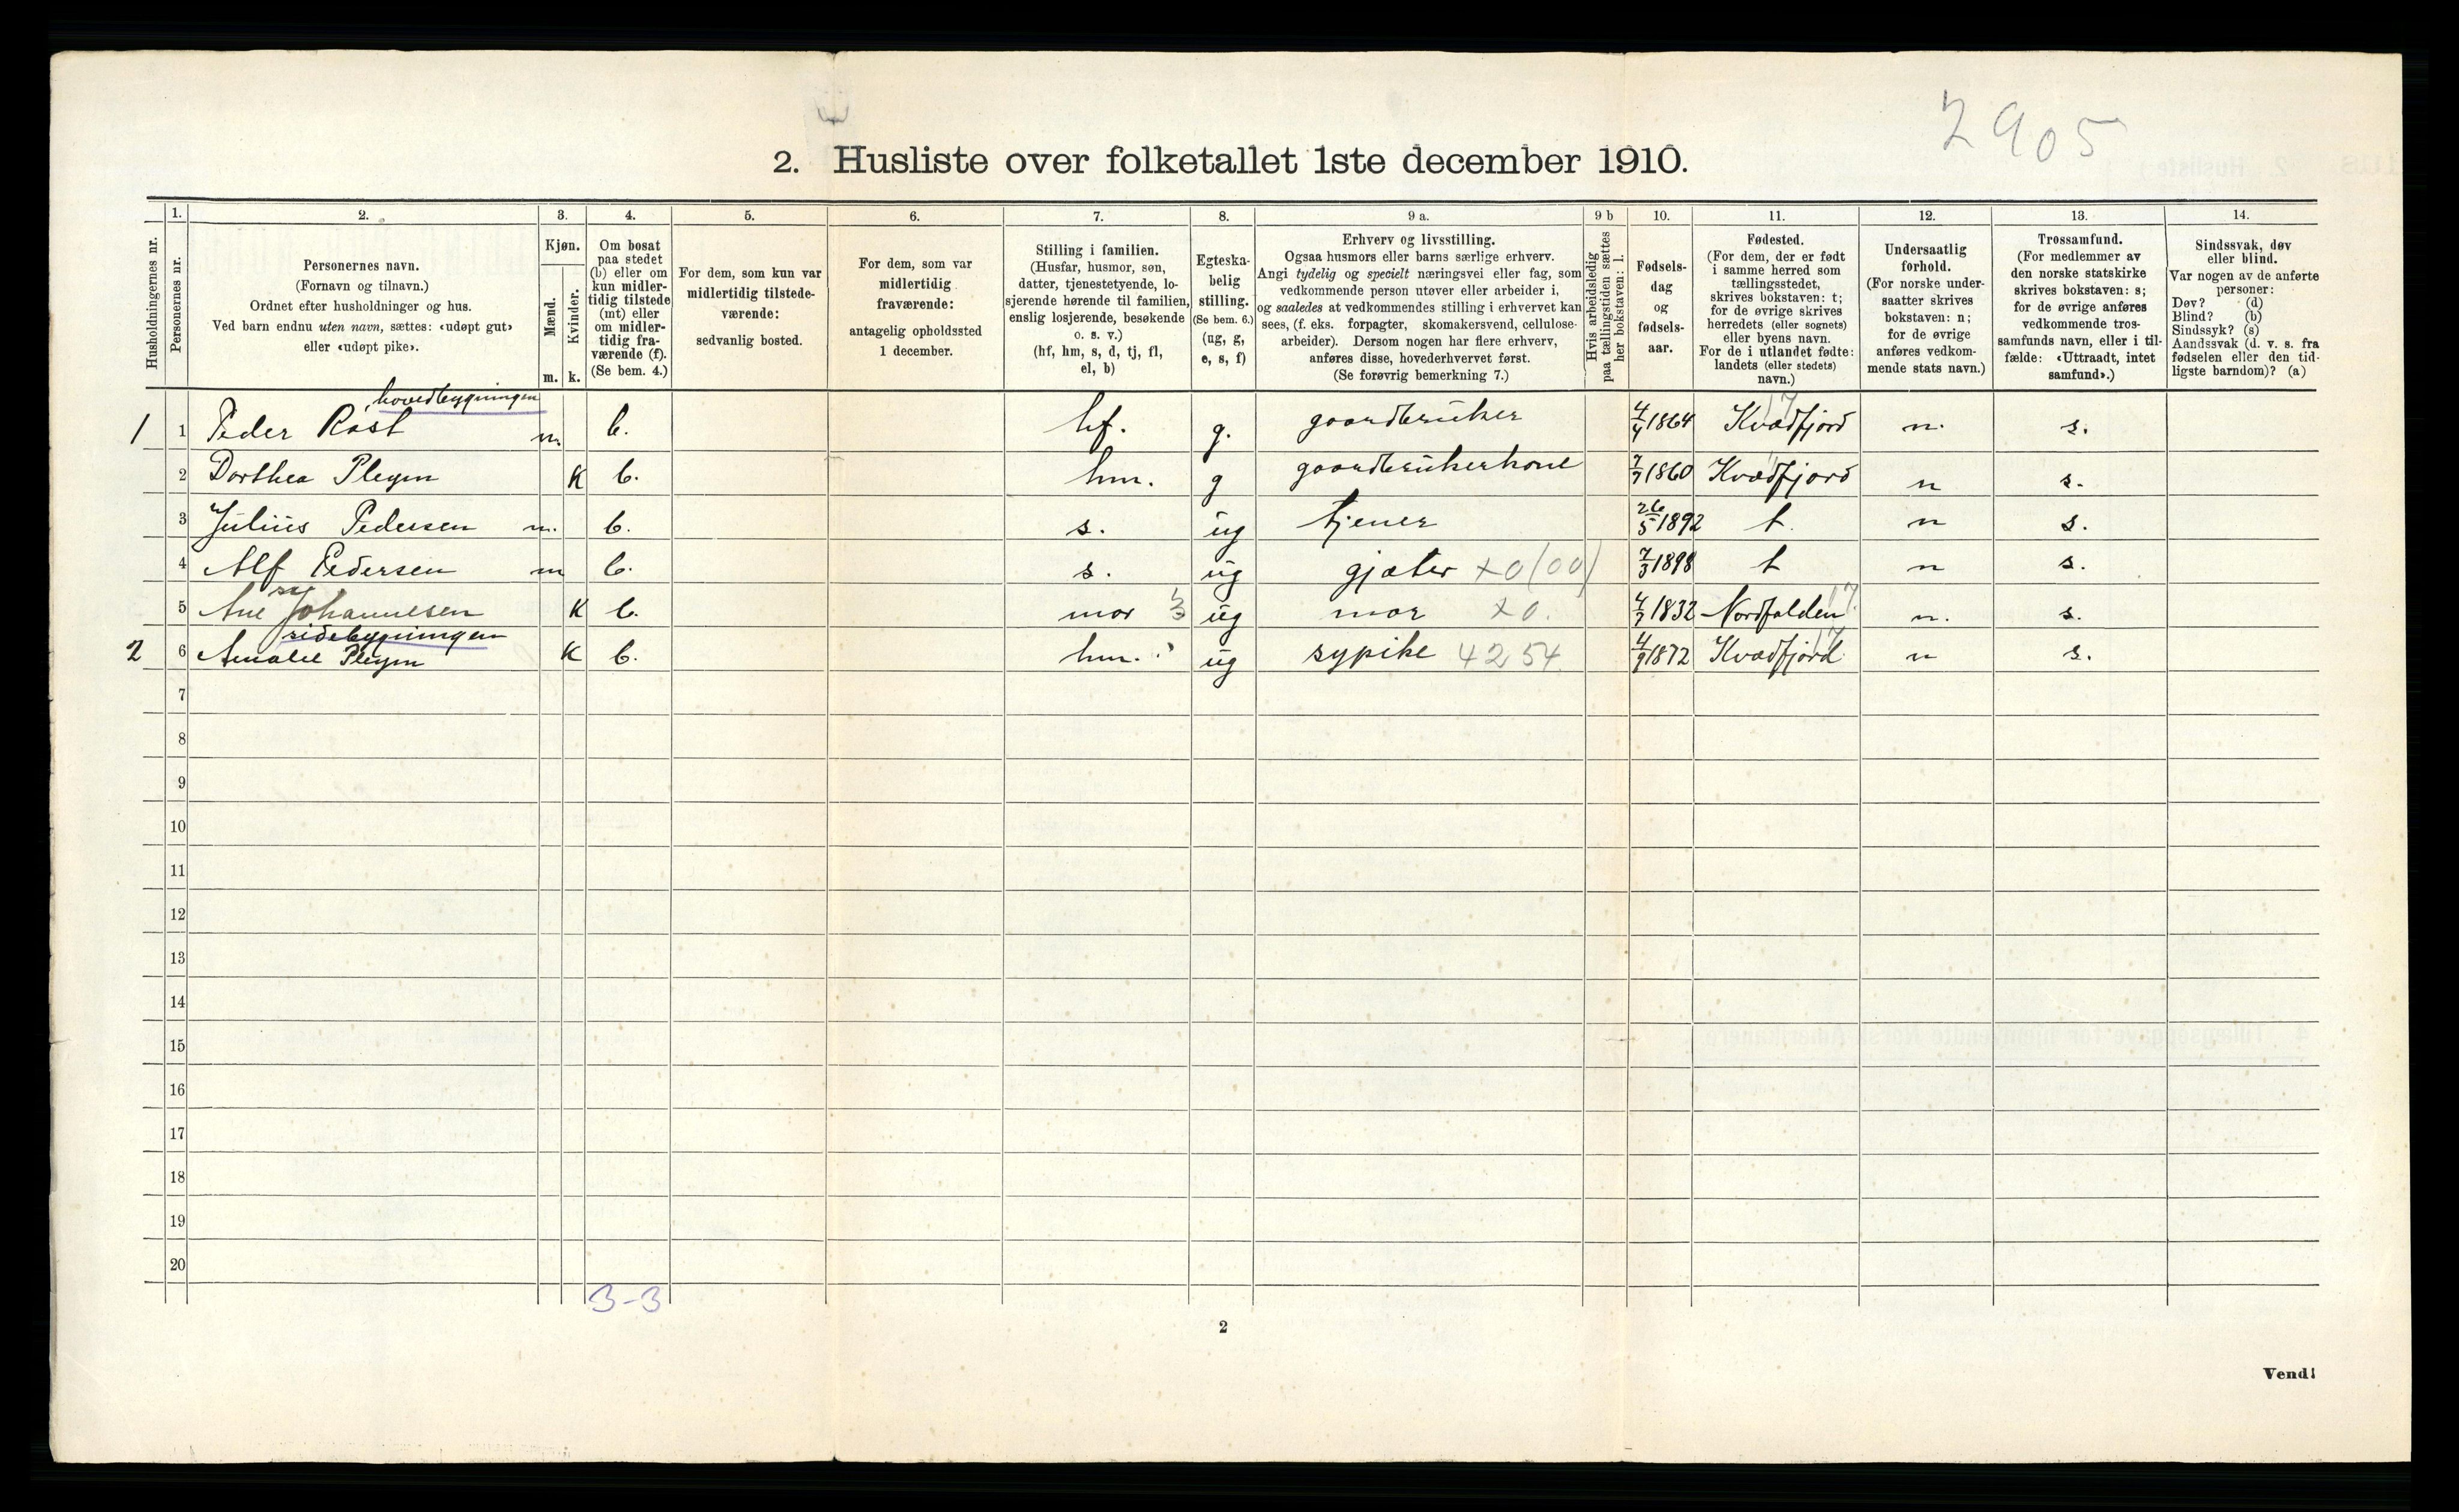 2905
2. Husliste over folketallet 1ste december 1910.
Husholdningernes nr.
1.
Personernes nr.
2.
Personernes navn.
(Fornavn og tilnavn.)
Ordnet efter husholdninger og hus.
Ved barn endnu uten navn, sættes: «udøpt gut»
eller «udøpt pike».
3.
Kjøn.
Mænd.
Kvinder.
m. k.
4.
Om bosat
paa stedet
(b) eller om
kun midler-
tidig tilstede
(mt) eller
om midler-
tidig fra-
værende (f).
(Se bem. 4.)
5.
For dem, som kun var
midlertidig tilstede-
værende:
sedvanlig bosted.
6.
For dem, som var
midlertidig
fraværende:
antagelig opholdssted
1 december.
7.
Stilling i familien.
(Husfar, husmor, søn,
datter, tjenestetyende, lo-
sjerende hørende til familien,
enslig losjerende, besøkende
o. s. v.)
(hf, hm, s, d, tj, fl,
el, b)
8.
Egteska-
belig
stilling.
(Se bem. 6.)
(ug, g,
e, s, f)
9 a.
Erhverv og livsstilling.
Ogsaa husmors eller barns særlige erhverv.
Angi tydelig og specielt næringsvei eller fag, som
vedkommende person utøver eller arbeider i,
og saaledes at vedkommendes stilling i erhvervet kan
sees, (f. eks. forpagter, skomakersvend, cellulose-
arbeider). Dersom nogen har flere erhverv,
anføres disse, hovederhvervet først.
(Se forøvrig bemerkning 7.)
9 b
Hvis arbeidsledig
paa tællingstiden sættes
her bokstaven: l.
10.
Fødsels-
dag
og
fødsels-
aar.
11.
Fødested.
(For dem, der er født
i samme herred som
tællingsstedet,
skrives bokstaven: t;
for de øvrige skrives
herredets (eller sognets)
eller byens navn.
For de i utlandet fødte:
landets (eller stedets)
navn.)
12.
Undersaatlig
forhold.
(For norske under-
saatter skrives
bokstaven: n;
for de øvrige
anføres vedkom-
mende stats navn.)
13.
Trossamfund.
(For medlemmer av
den norske statskirke
skrives bokstaven: s;
for de øvrige anføres
vedkommende tros-
samfunds navn, eller i til-
fælde: «Uttraadt, intet
samfund».)
14.
Sindssvak, døv
eller blind.
Var nogen av de anførte
personer:
Døv? (d)
Blind? (b)
Sindssyk? (s)
Aandssvak (d. v. s. fra
fødselen eller den tid-
ligste barndom)? (a)
hovedbygningen
1 1 Peder Røst m. b. hf. g. gaardbruker 4/4 1864 Kvædfjord n. s.
2 Dorthea Pleym K b. hm. g gaardbrukerkone 7/7 1860 Kvædfjord n s.
3 Julius Pedersen m. b. s. ug tjener 26/5 1892 t. n s.
4 Alf Pedersen m b. s. ug gjæter x0 (00) 7/3 1898 t n s.
5 Ane Johannesen K b. mor ug mor x0. 4/7 1832 Nordfolden 17 n. s.
sidebygningen
2 6 Amalie Pleym K b. hm. ug sypike 4254 4/9 1872 Kvædfjord 17 n s.
7
8
9
10
11
12
13
14
15
16
17
18
19
20
3-3
2
Vend!